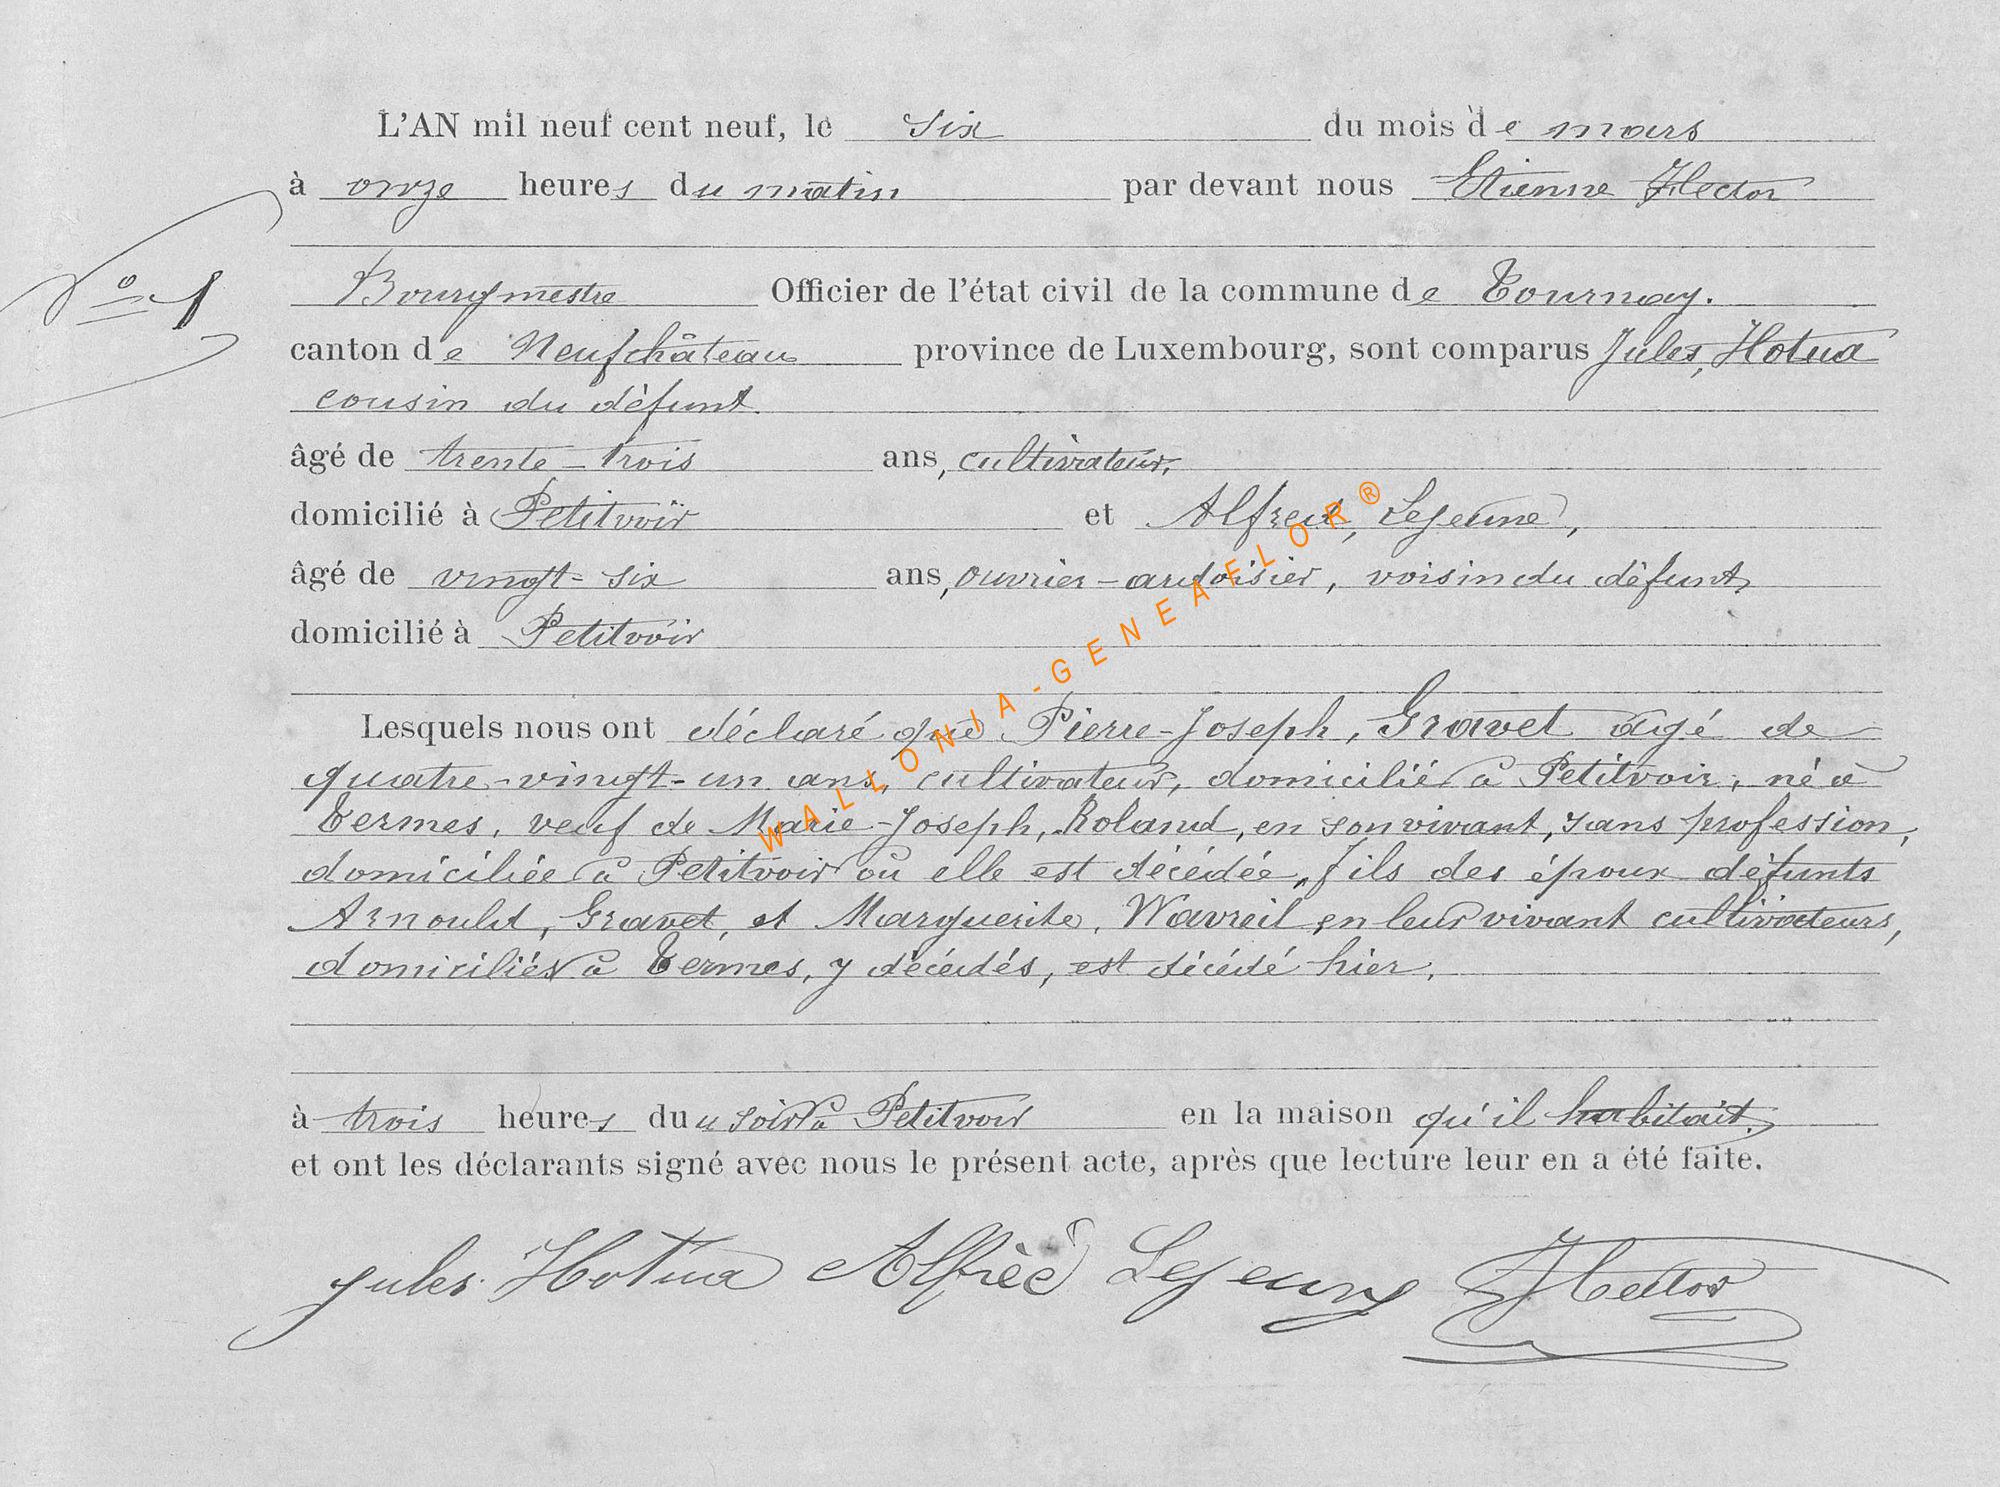 L'AN mil neuf cent neuf, le six du mois de mars
à onze heures du matin par devant nous Etienne Hector
N° 1
Bourgmestre Officier de l'état civil de la commune de Tournay.
canton de Neufchâteau province de Luxembourg, sont comparus Jules, Hotua
cousin du défunt
âgé de trente-trois ans, cultivateur,
domicilié à Petitvoir et Alfred, Lejeune,
âgé de vingt-six ans, ouvrier-ardoisier, voisin du défunt,
domicilié à Petitvoir
Lesquels nous ont déclaré que Pierre-Joseph, Gravet âgé de
quatre-vingt-un ans, cultivateur, domicilié à Petitvoir, né à
Termes, veuf de Marie-Joseph, Roland, en son vivant, sans profession,
domiciliée à Petitvoir où elle est décédée, fils des époux défunts
Arnould, Gravet, et Marguerite, Wavreil, en leur vivant cultivateurs,
domiciliés à Termes, y décédés, est décédé hier,
à trois heures du soir à Petitvoir en la maison qu'il habitait,
et ont les déclarants signé avec nous le présent acte, après que lecture leur en a été faite.
Jules Hotua Alfred Lejeune Hector
WALLONIA-GENEAFLOR®